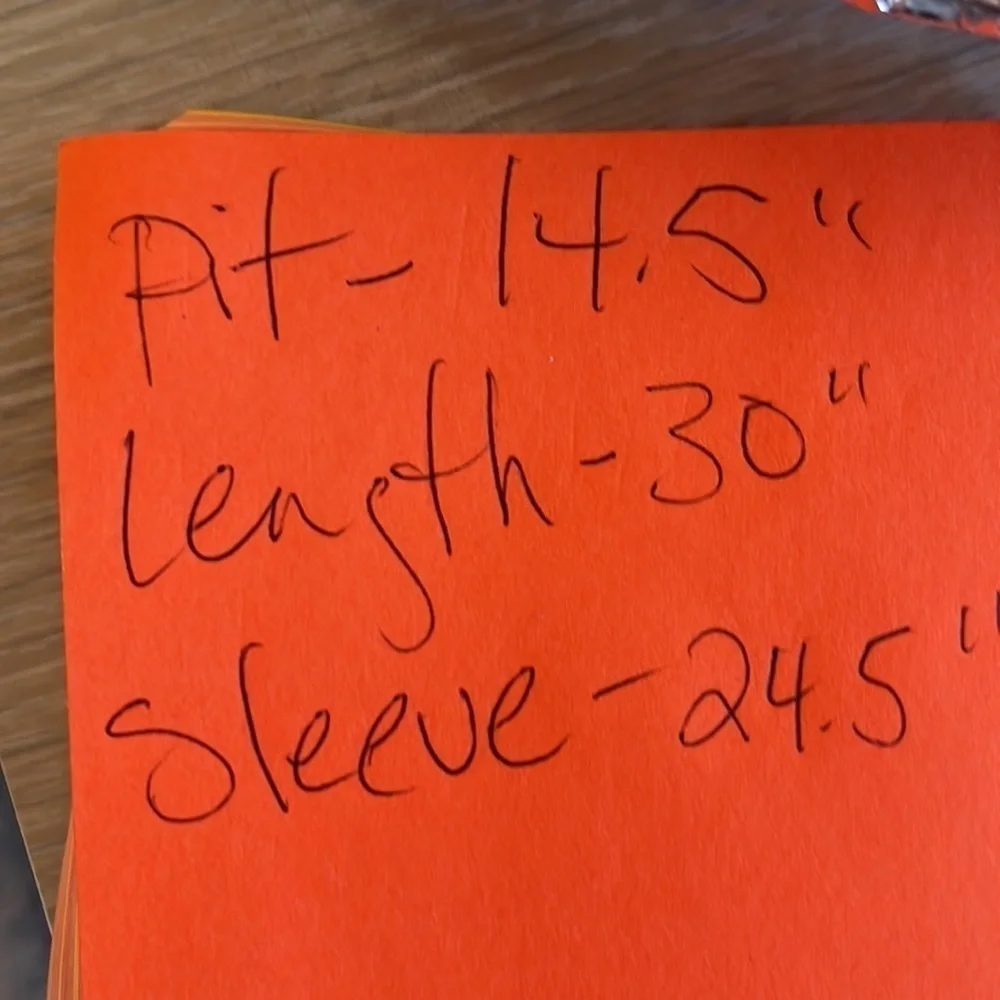 Pit - 14.5"
Length - 30"
Sleeve - 24.5"